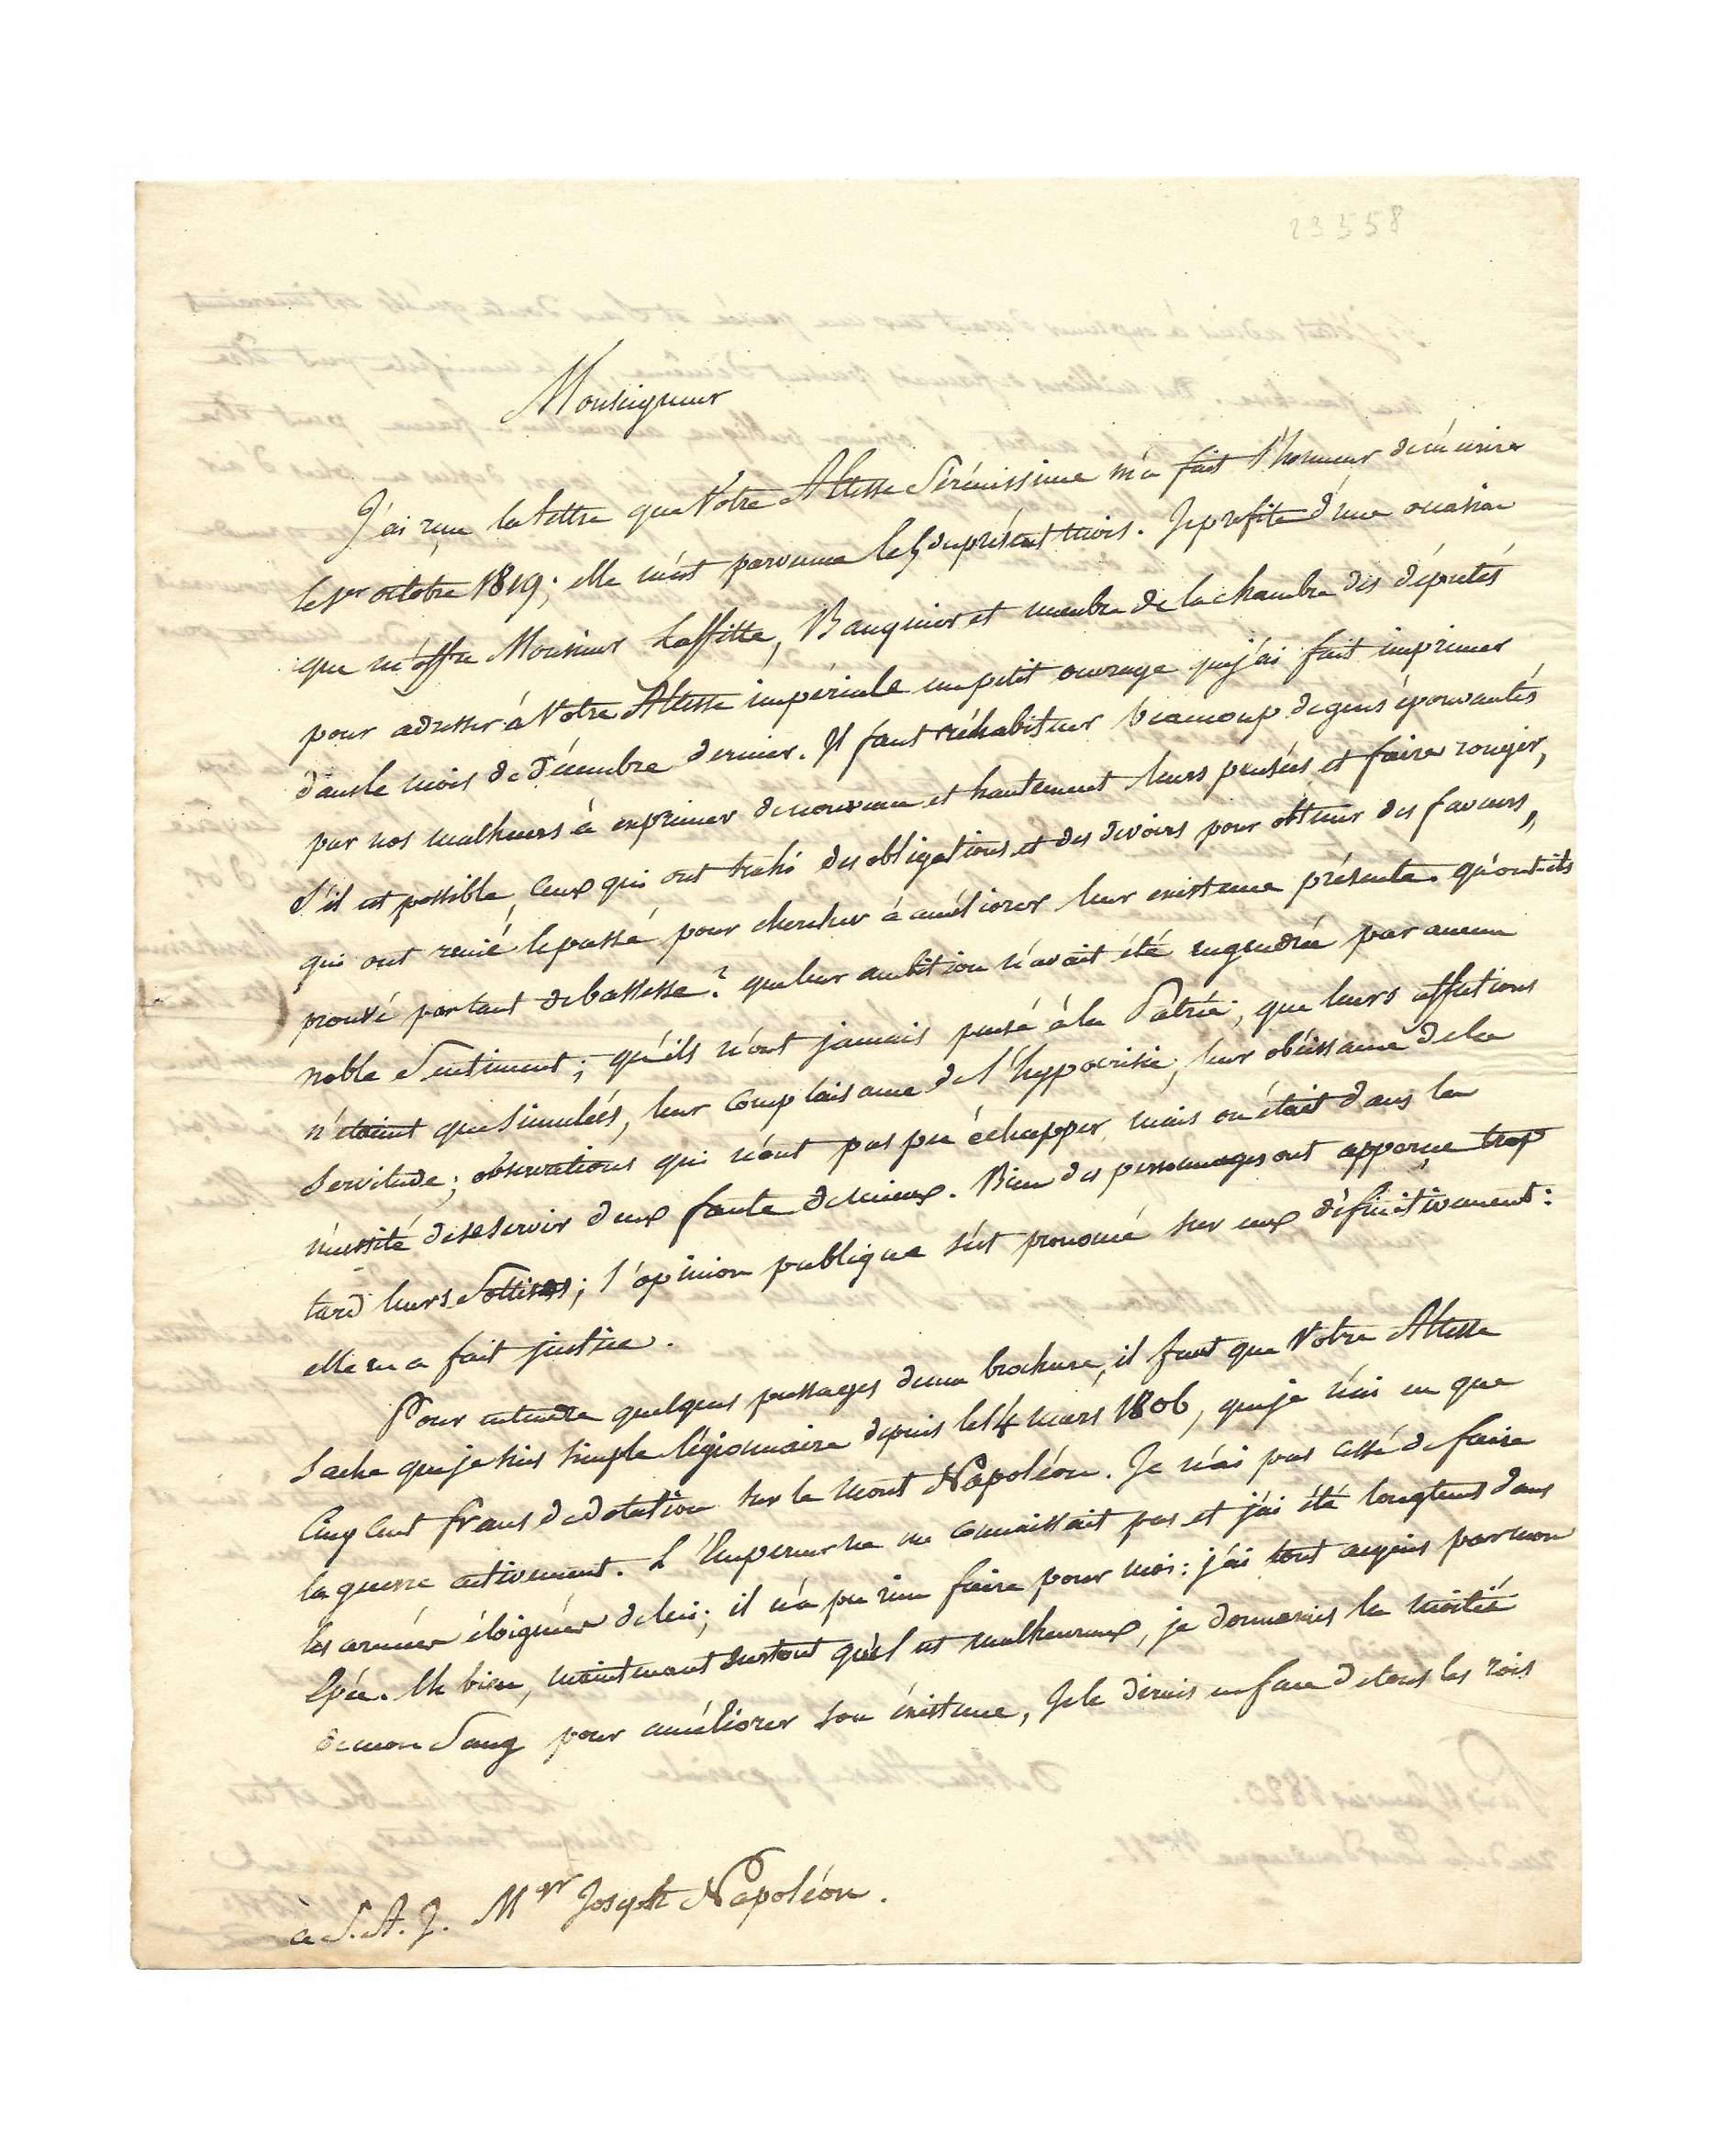 23558
Monseigneur
J'ai reçu la lettre que Votre Altesse Sérénissime m'a fait l'honneur de m'écrire
le 1er octobre 1819; elle m'est parvenue le 5 du présent mois. Je profite d'une occasion
que m'offre Monsieur Laffitte, Banquier et membre de la chambre des députés
pour adresser à Votre Altesse impériale un petit ouvrage que j'ai fait imprimer
dans le mois de Décembre dernier. Il faut réhabituer beaucoup de gens épouvantés
par nos malheurs à exprimer de nouveau et hautement leurs pensées et faire rougir,
s'il est possible, ceux qui ont trahi des obligations et des devoirs pour obtenir des faveurs,
qui ont renié le passé pour chercher à améliorer leur existence présente. qu'ont-ils
prouvé par tant de bassesse? que leur ambition n'avait été engendrée par aucun
noble sentiment; qu'ils n'ont jamais pensé à la Patrie, que leurs affections
n'étaient que simulées, leur complaisance de l'hypocrisie, leur obéissance de la
servitude; observations qui n'ont pas pu échapper, mais on était dans la
nécessité de se servir d'eux faute de mieux. Bien des personnages ont apperçu trop
tard leurs sottises; l'opinion publique s'est prononcé sur eux définitivement:
elle en a fait justice.
Pour entendre quelques passages de ma brochure, il faut que Votre Altesse
sache que je suis simple légionnaire depuis le 14 mars 1806, que je n'ai eu que
cinq cent francs de dotation sur le mont Napoléon. Je n'ai pas cessé de faire
la guerre activement. L'Empereur ne me connaissait pas et j'ai été longtems dans
les armées éloignées de lui; il n'a pu rien faire pour moi: j'ai tout acquis par mon
épée. Eh bien, maintenant surtout qu'il est malheureux, je donnerais la moitié
de mon sang pour améliorer son éxistence, Je le dirais en face de tous les rois
à S.A.I. Mgr Joseph Napoléon.